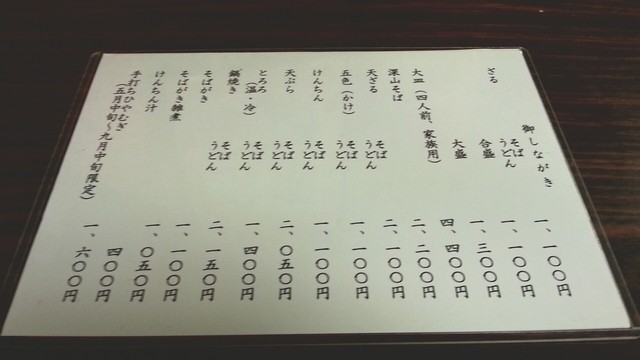 御しながき
ざる そば うどん 一、一〇〇円
合盛 一、一〇〇円
大盛 一、三〇〇円
大皿(四人前、家族用) 四、四〇〇円
深山そば 二、二〇〇円
天ざる そば うどん 二、一〇〇円
五色(かけ) そば うどん 一、一〇〇円
けんちん そば うどん 一、一〇〇円
天ぷら そば うどん 二、〇五〇円
とろろ(温・冷) そば うどん 一、四〇〇円
鍋焼き そば うどん 二、一五〇円
そばがき 一、一〇〇円
そばがき雑煮 一、〇五〇円
けんちん汁 四〇〇円
手打ちひやむぎ 一、六〇〇円
(五月中旬〜九月中旬限定)